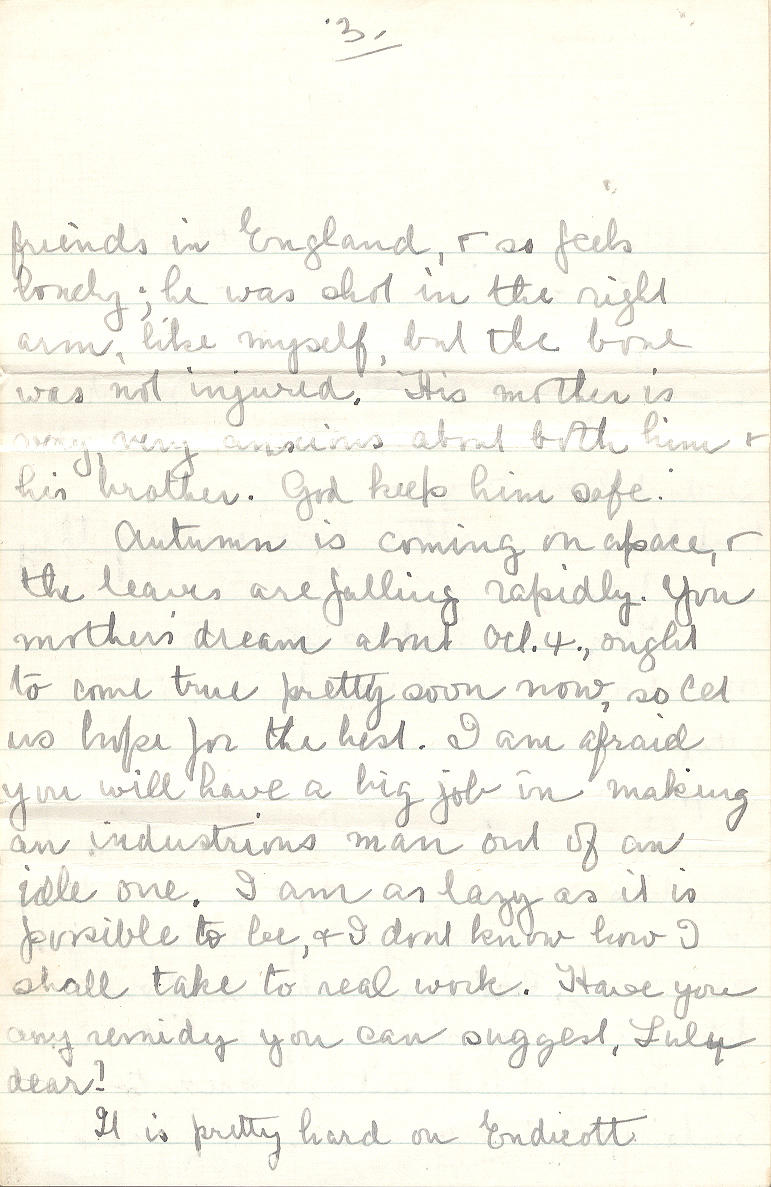 3.
friends in England, & so feels
lonely; he was shot in the right
arm, like myself, but the bone
was not injured. His mother is
very, very anxious about both him &
his brother. God keep him safe.
Autumn is coming on apace, &
the leaves are falling rapidly. You
mother's dream about Oct. 4., ought
to come true pretty soon now, so let
us hope for the best. I am afraid
you will have a big job in making
an industrious man out of an
idle one. I am as lazy as it is
possible to be, & I dont know how I
shall take to real work. Have you
any remidy you can suggest, Luly
dear!
It is pretty hard on Endicott